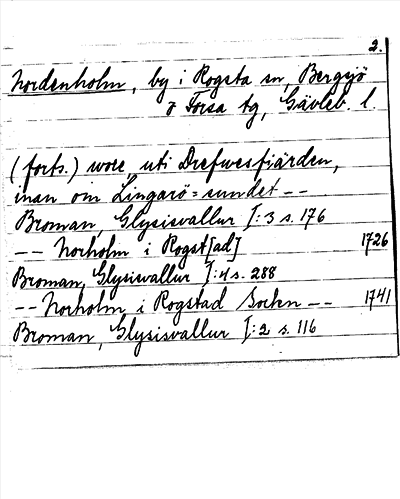 2.
Nordenholm, by i Rogsta sn, Bergsjö
o Forsa tg, Gävleb. l.
(forts.) wore uti Drefwesfjärden,
inan om Lingarö=sundet --
Broman, Glysisvallur I:3 s. 176
-- Norholm i Rogst[ad] 1726
Broman, Glysisvallur I:4 s. 288
-- Norholm i Rogstad Socken -- 1741
Broman, Glysisvallur I:2 s. 116